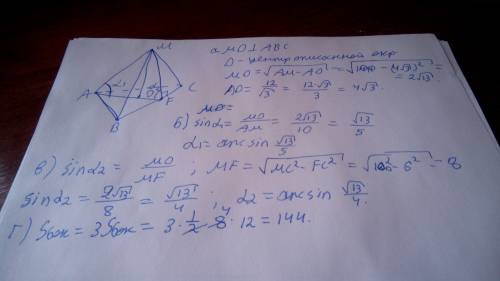 M
A
B
C
F
O
α1
а. MO⊥ABC
O - центр описанной окр
MO = √AM - AO² = √100 - (4√3)² =
= 2√13
AO = 12/√3 = 12·√3/3 = 4√3.
MO=
б) sinα1 = MO/AM = 2√13/10 = √13/5
α1 = arcsin √13/5
в) sinα2 = MO/MF ; MF = √MC² - FC² = √10² - 6² = 8
sinα2 = 2√13/8 = √13/4 ; α2 = arcsin √13/4.
г) Sбок = 3Sбок = 3 · 1/2 · 8 · 12 = 144.